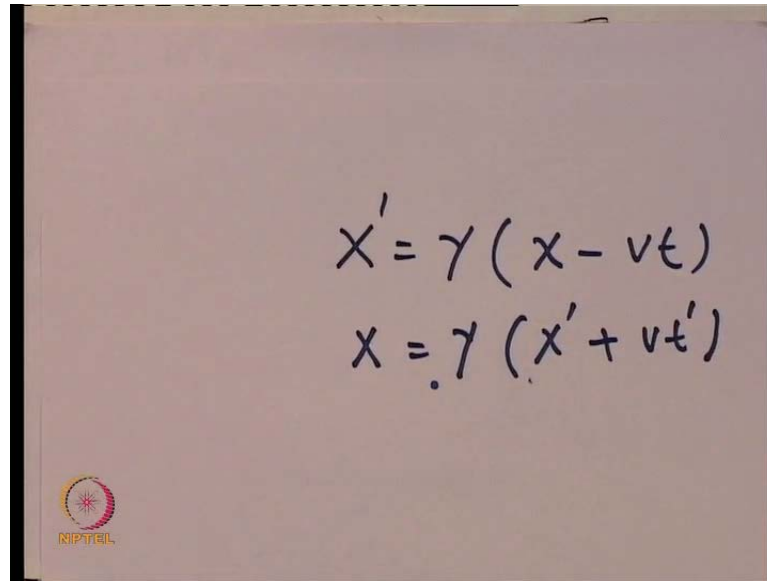 x' = γ ( x - vt)
x = γ (x' + vt')
NPTEL